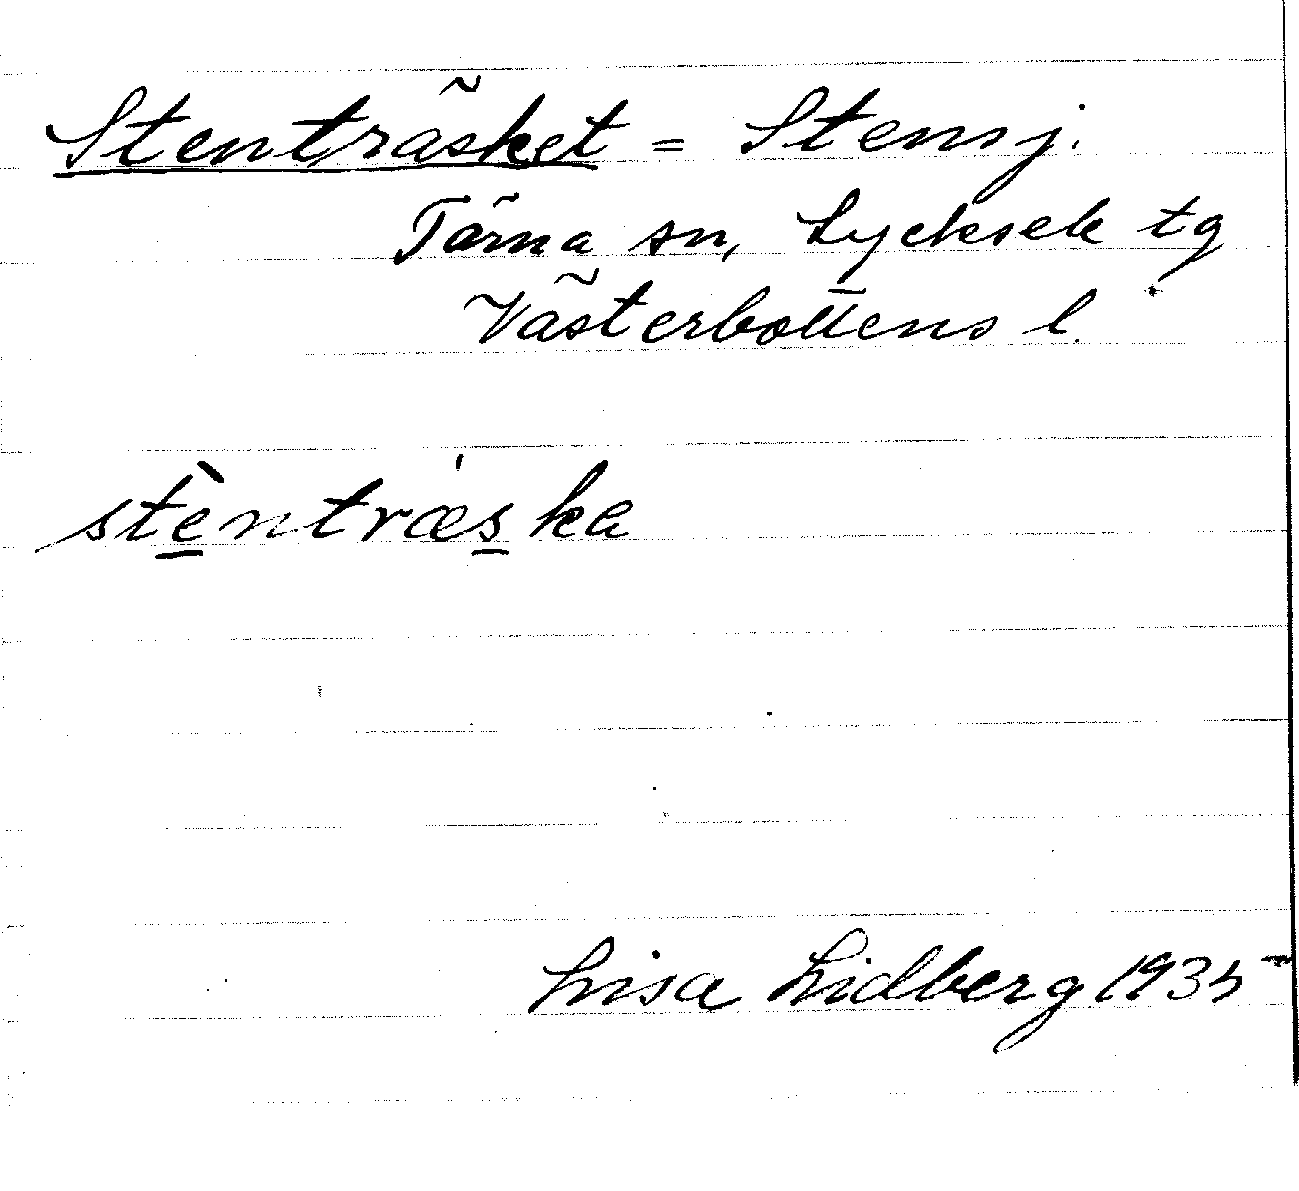 Stenträsket = Stensj.
Tärna sn, Lycksele tg
Västerbottens l.
stèntræ'ska
Lisa Lidberg 1935